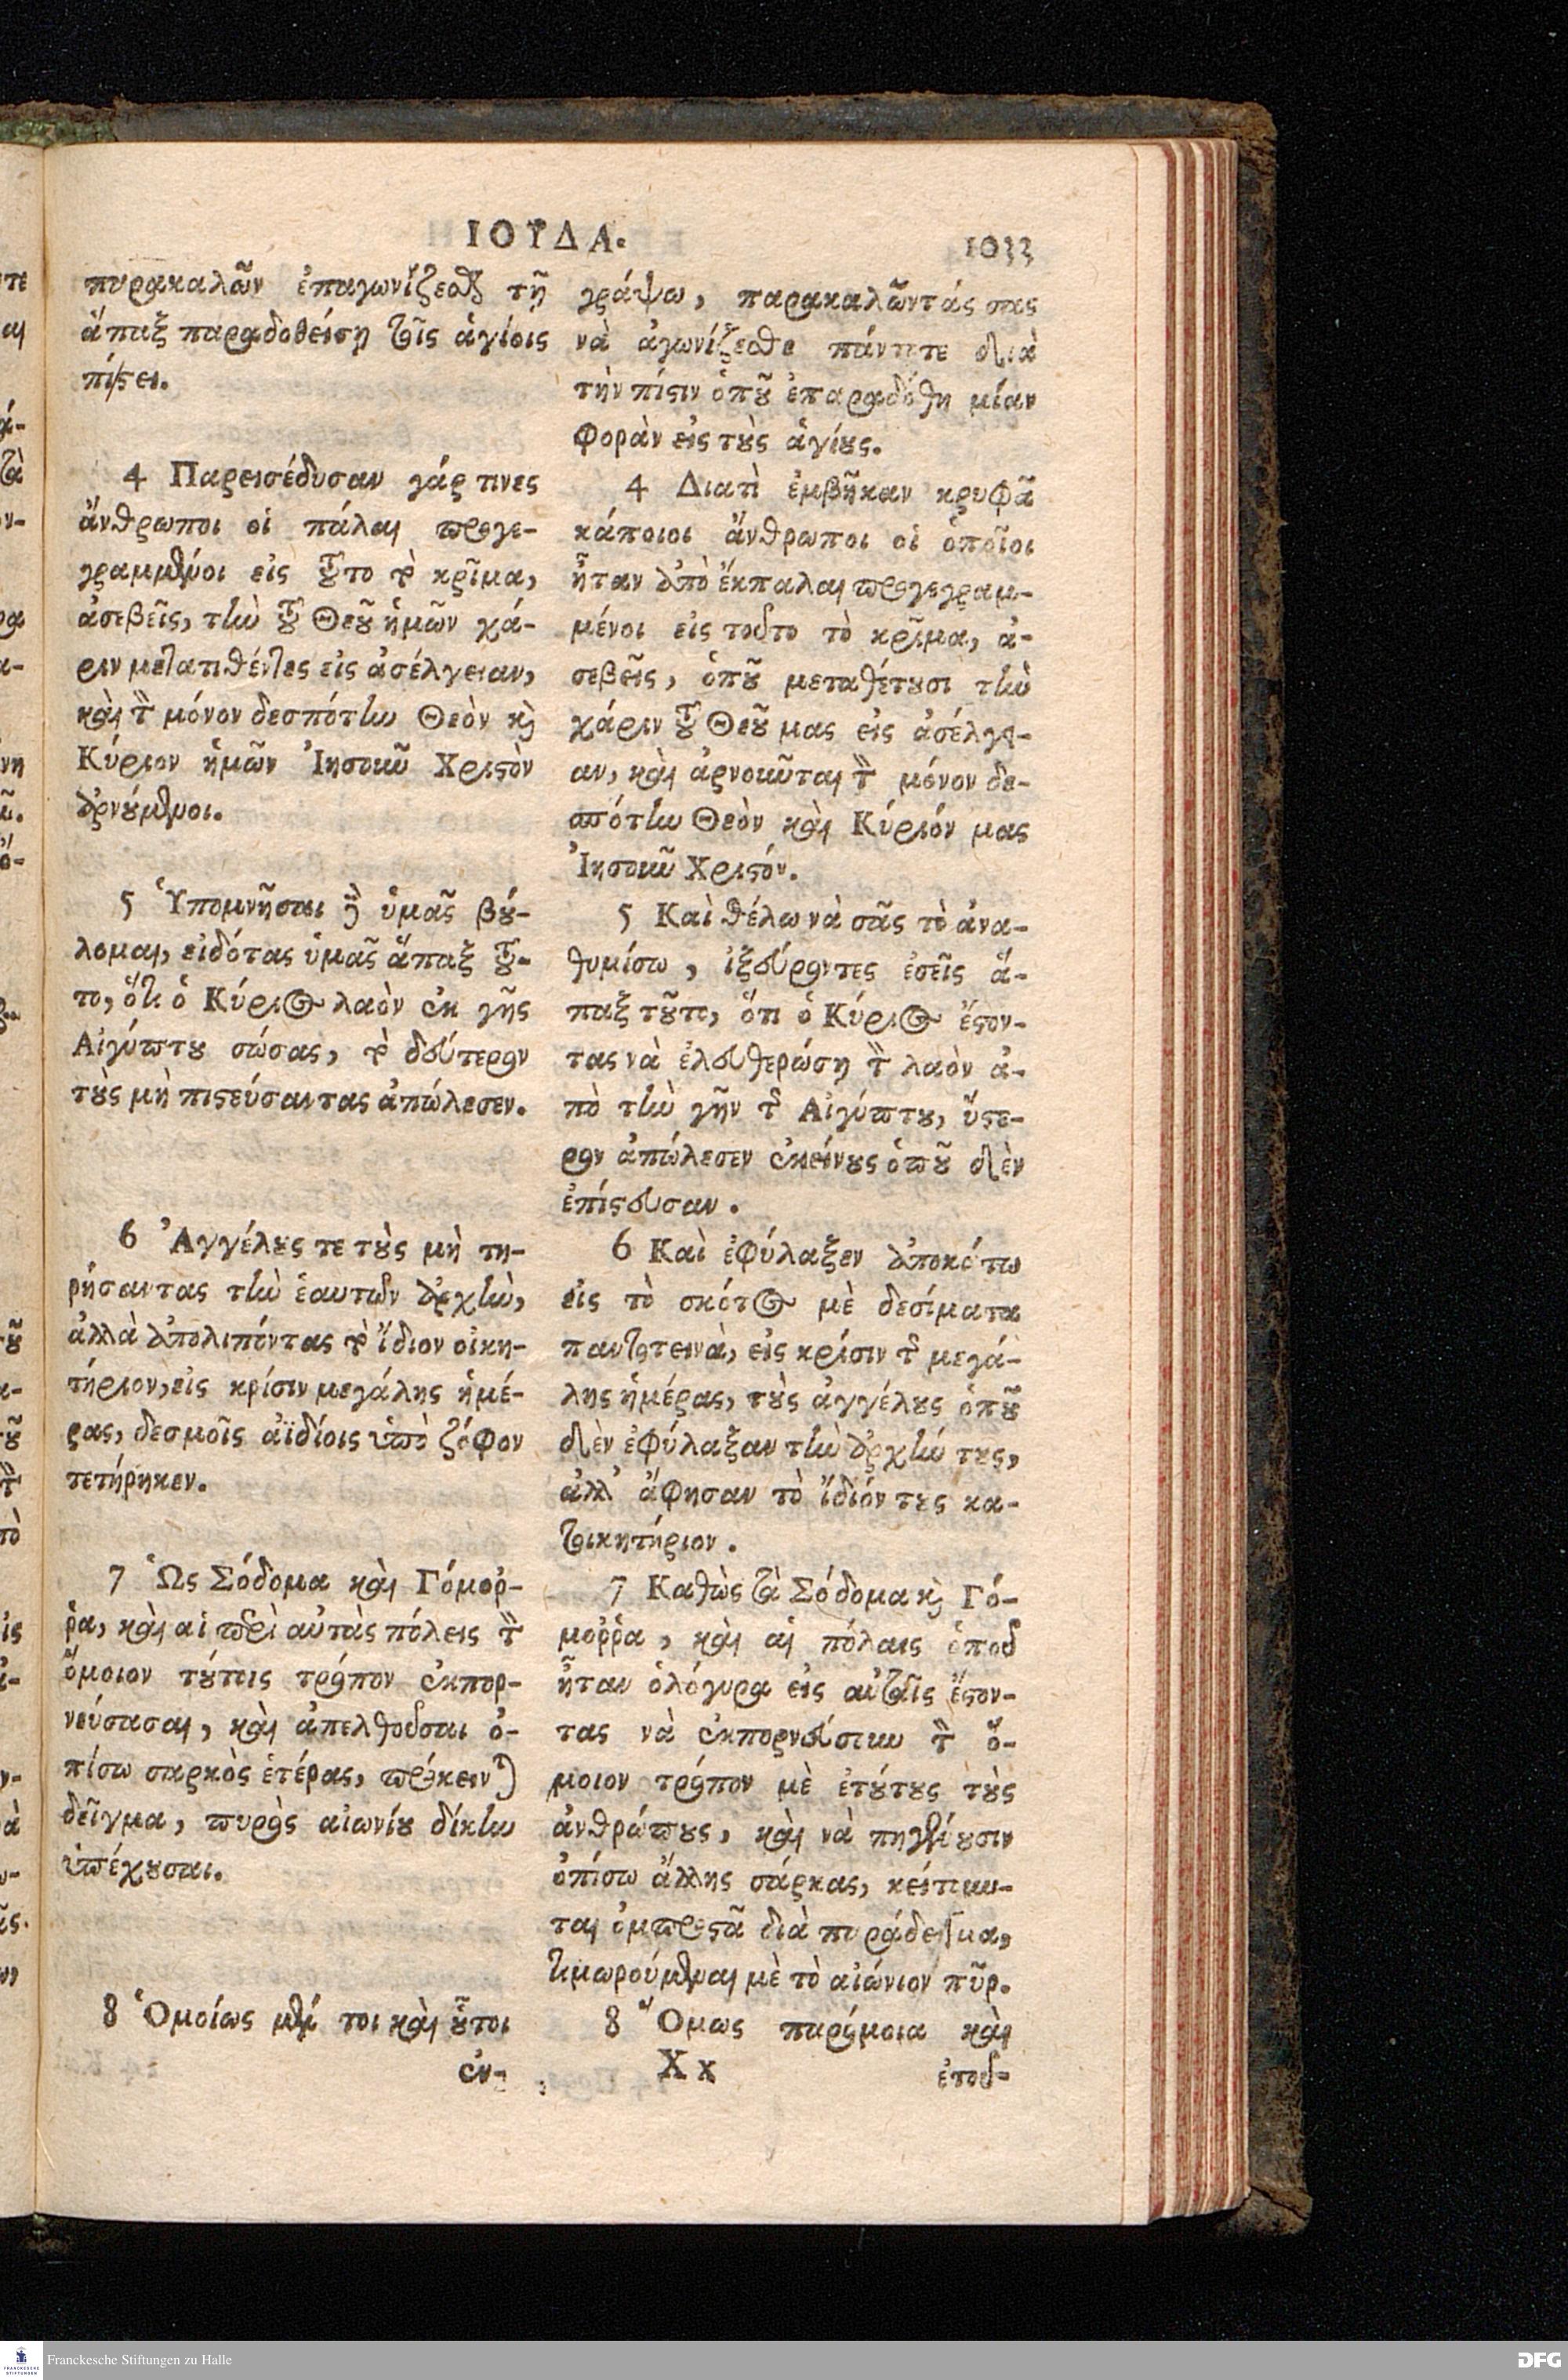 ΙΟΥΔΑ.
1033
παρακαλῶν ἐπαγωνίζεσθαι τῇ
ἅπαξ παραδοθείσῃ τοῖς ἁγίοις
πίστει.
4 Παρεισέδυσαν γάρ τινες
ἄνθρωποι οἱ πάλαι προγε-
γραμμένοι εἰς τοῦτο τὸ κρῖμα,
ἀσεβεῖς, τὴν τοῦ Θεοῦ ἡμῶν χά-
ριν μετατιθέντες εἰς ἀσέλγειαν,
καὶ τὸν μόνον δεσπότην Θεὸν καὶ
Κύριον ἡμῶν Ἰησοῦν Χριστὸν
ἀρνούμενοι.
5 Ὑπομνῆσαι δὲ ὑμᾶς βού-
λομαι, εἰδότας ὑμᾶς ἅπαξ τοῦ-
το, ὅτι ὁ Κύριος λαὸν ἐκ γῆς
Αἰγύπτου σώσας, τὸ δεύτερον
τοὺς μὴ πιστεύσαντας ἀπώλεσεν.
6 Ἀγγέλους τε τοὺς μὴ τη-
ρήσαντας τὴν ἑαυτῶν ἀρχὴν,
ἀλλὰ ἀπολιπόντας τὸ ἴδιον οἰκη-
τήριον, εἰς κρίσιν μεγάλης ἡμέ-
ρας, δεσμοῖς ἀϊδίοις ὑπὸ ζόφον
τετήρηκεν.
7 Ὡς Σόδομα καὶ Γόμορ-
ῥα, καὶ αἱ περὶ αὐτὰς πόλεις τὸν
ὅμοιον τούτοις τρόπον ἐκπορ-
νεύσασαι, καὶ ἀπελθοῦσαι ὀ-
πίσω σαρκὸς ἑτέρας, πρόκεινται
δεῖγμα, πυρὸς αἰωνίου δίκην
ὑπέχουσαι.
8 Ὁμοίως μέν τοι καὶ οὗτοι
ἐν-
γράψω, παρακαλῶντάς σας
νὰ ἀγωνίζεσθε πάντοτε διὰ
τὴν πίστιν ὁποῦ ἐπαραδόθη μίαν
φορὰν εἰς τοὺς ἁγίους.
4 Διατὶ ἐμβῆκαν κρυφᾶ
κάποιοι ἄνθρωποι οἱ ὁποῖοι
ἦταν ἀπὸ ἔκπαλαι προγεγραμ-
μένοι εἰς τοῦτο τὸ κρῖμα, ἀ-
σεβεῖς, ὁποῦ μεταθέτουσι τὴν
χάριν τοῦ Θεοῦ μας εἰς ἀσέλγει-
αν, καὶ ἀρνοῦνται τὸν μόνον δε-
σπότην Θεὸν καὶ Κύριόν μας
Ἰησοῦν Χριστόν.
5 Καὶ θέλω νὰ σᾶς τὸ ἀνα-
θυμίσω, ἰξεύροντες ἐσεῖς ἅ-
παξ τοῦτο, ὅτι ὁ Κύριος ἔστον-
τας νὰ ἐλευθερώσῃ τὸν λαὸν ἀ-
πὸ τὴν γῆν τῆς Αἰγύπτου, ὕστε-
ρον ἀπώλεσεν ἐκείνους ὁποῦ δὲν
ἐπίστευσαν.
6 Καὶ ἐφύλαξεν ἀποκάτω
εἰς τὸ σκότος μὲ δεσίματα
παντοτεινὰ, εἰς κρίσιν τῆς μεγά-
λης ἡμέρας, τοὺς ἀγγέλους ὁποῦ
δὲν ἐφύλαξαν τὴν ἀρχήν τους,
ἀλλ' ἄφησαν τὸ ἴδιόν τους κα-
τοικητήριον.
7 Καθὼς τὰ Σόδομα καὶ Γό-
μοῤῥα, καὶ αἱ πόλαις ὁποῦ
ἦταν ὁλόγυρα εἰς αὐταῖς ἔστον-
τας νὰ ἐκπορνεύσουν τὸν ὅ-
μοιον τρόπον μὲ ἐτούτους τοὺς
ἀνθρώπους, καὶ νὰ πηγαίνουσιν
ὀπίσω ἄλλης σάρκας, κείτουν-
ται ὀμπροστᾶ διὰ παράδειγμα,
τιμωρούμεναι μὲ τὸ αἰώνιον πῦρ.
8 Ὅμως παρόμοια καὶ
Χχ
ἐτοῦ-
Franckesche Stiftungen zu Halle
DFG